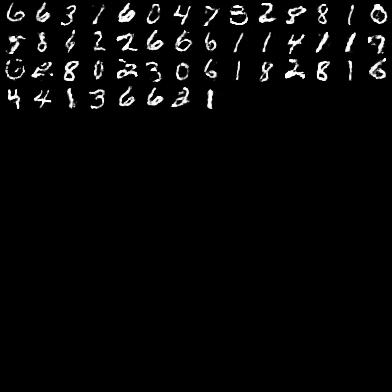 6 6 3 1 6 0 4 7 3 2 8 8 1 0
8 6 2 2 6 6 6 1 1 4 1 1 9
0 2 8 0 2 3 0 6 1 8 2 8 1 6
4 4 1 3 6 6 2 1